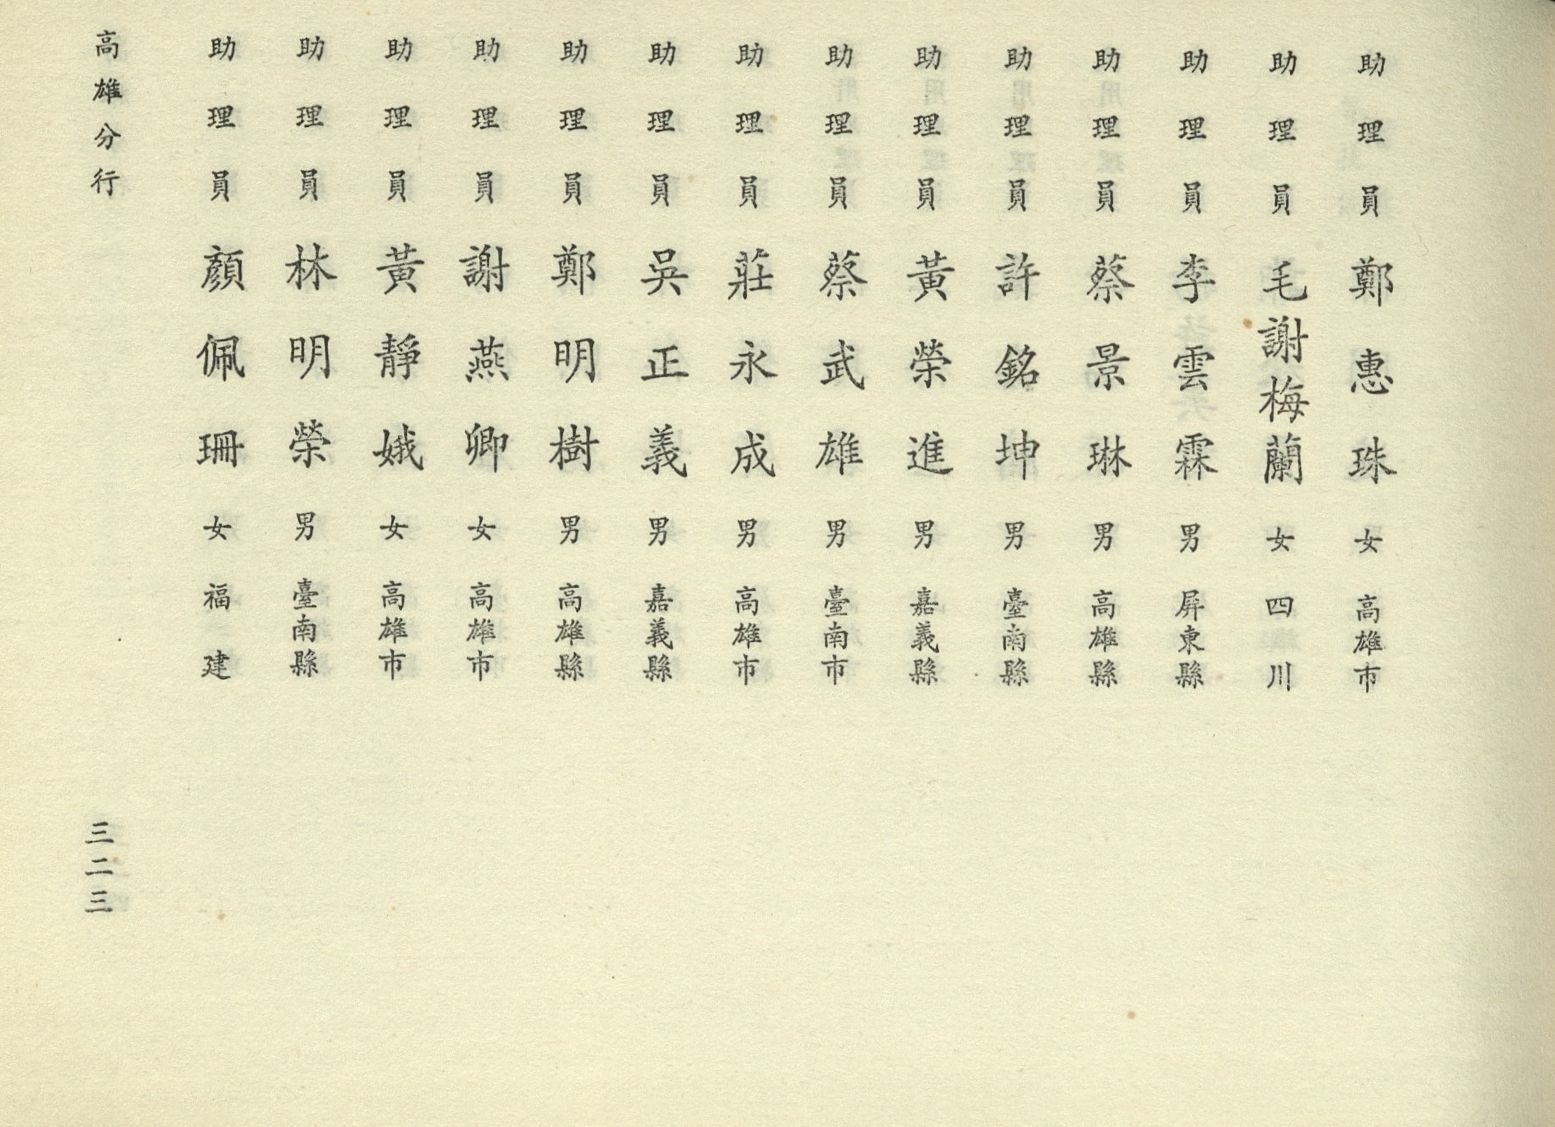 助理員鄭惠珠女高雄市
助理員毛謝梅蘭女四川
助理員李雲霖男屏東縣
助理員蔡景琳男高雄縣
助理員許銘坤男臺南縣
助理員黃榮進男嘉義縣
助理員蔡武雄男臺南市
助理員莊永成男高雄市
助理員吳正義男嘉義縣
助理員鄭明樹男高雄縣
助理員謝燕卿女高雄市
助理員黃靜娥女高雄市
助理員林明榮男臺南縣
助理員顏佩珊女福建
高雄分行
三二三